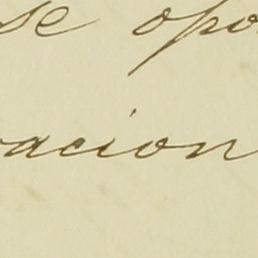 se opo
vacion